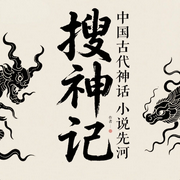 搜神记
中国古代神话
小说先河